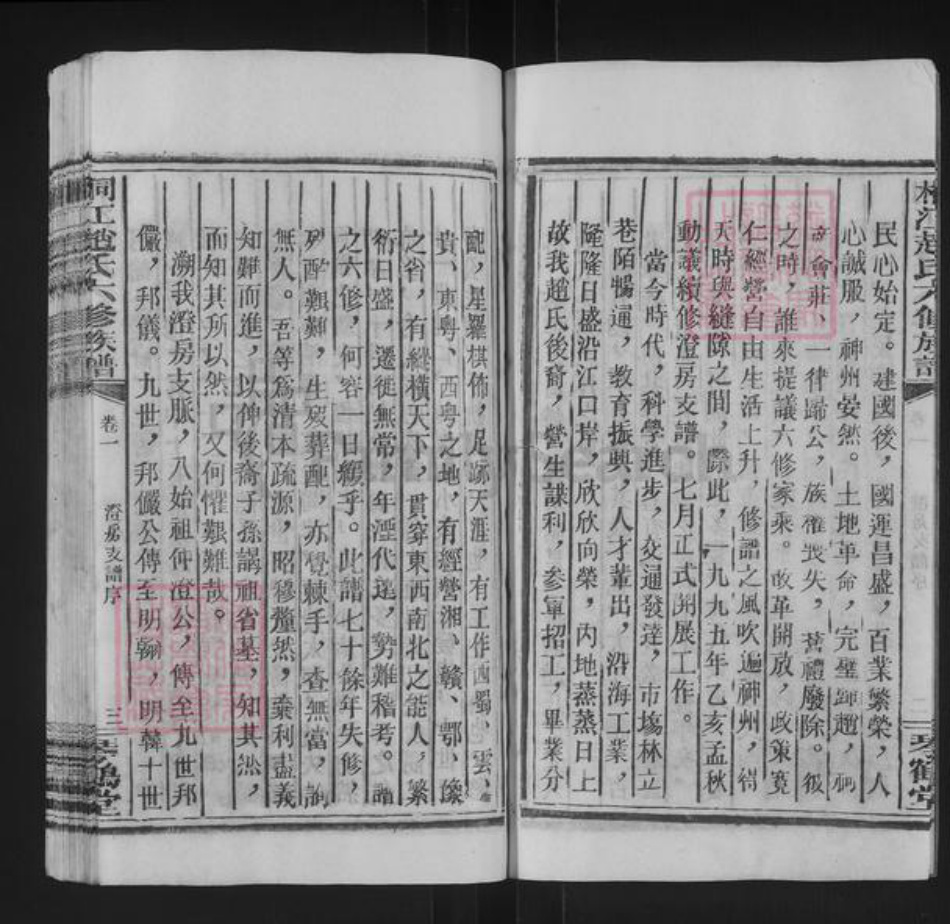 民心始定。建國後，國運昌盛，百業繁榮，人
心誠服，神州晏然。土地革命，完璧歸趙，祠
會莊、一律歸公，族權喪失，舊禮廢除。彼
之時，誰來提議六修家乘。改革開放，政策寬
仁經營自由生活上升，修譜之風吹遍神州，特
天時與縫隙之間，際此，一九九五年乙亥孟秋
動議續修澄房支譜。七月正式開展工作。
當今時代，科學進步，交通發達，市場林立
巷陌暢通，教育振興，人才輩出，沿海工業，
隆隆日盛沿江口岸，欣欣向榮，內地蒸蒸日上
故我趙氏後裔，營生謀利，參軍招工，畢業分
配，星羅棋佈，足跡天涯，有工作西蜀、雲、
貴、東粵、西粵之地，有經營湘、贛、鄂、豫
之省，有縱橫天下，貫穿東西南北之能人，繁
衍日盛，遷徙無常，年湮代遠，勢難稽考。譜
之六修，何容一日緩乎。此譜七十餘年失修，
艱難，生歿葬配，亦覺棘手，查無當，詢
無人。吾等為清本疏源，昭穆釐然，棄利盡義
知難而進，以俾後裔子孫講祖省墓，知其然，
而知其所以然，又何懼艱難哉。
溯我澄房支脈，八始祖仲澄公，傳至九世邦
儼，邦儀。九世，邦儼公傳至明翰，明韓十世
江趙氏六修族譜
卷一
澄房支譜序
三
琴鶴堂
江趙氏六修族譜
二
琴鶴堂